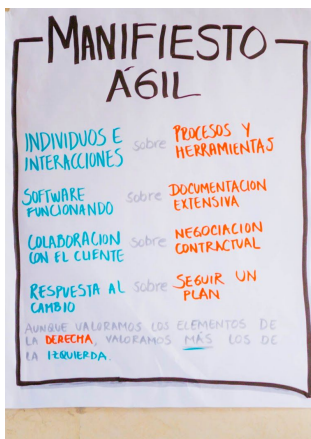 MANIFIESTO
ÁGIL
INDIVIDUOS E
INTERACCIONES
sobre
PROCESOS Y
HERRAMIENTAS
SOFTWARE
FUNCIONANDO
sobre
DOCUMENTACION
EXTENSIVA
COLABORACION
CON EL CLIENTE
sobre
NEGOCIACION
CONTRACTUAL
RESPUESTA AL
CAMBIO
sobre
SEGUIR UN
PLAN
AUNQUE VALORAMOS LOS ELEMENTOS DE
LA DERECHA, VALORAMOS MÁS LOS DE
LA IZQUIERDA.